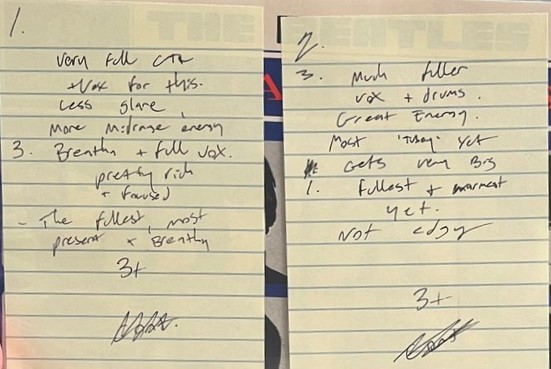 THE BEATLES
1.
very full GTR
+ vox for this.
Less glare
more midrange energy
3. Breathy + full vox.
pretty rich
+ focused
- The fullest, most
present + Breathy
3+
2.
3. Much fuller
vox + drums.
Great Energy.
Most 'Tubey' yet
Gets very Big
1. fullest + warmest
yet.
Not edgy
3+